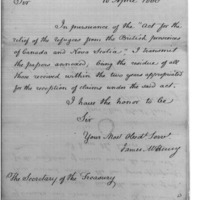 Sir
In pursuance of the "Act for the
relief of the refugees from the British provinces
of Canada and Nova Scotia," I transmit
the papers annexed, being the residue of all
those received within the two years appropriated
for the reception of claims under the said act.
I have the honor to be
Sir
Your Most Obed. Serv.
James McHenry
The Secretary of the Treasury